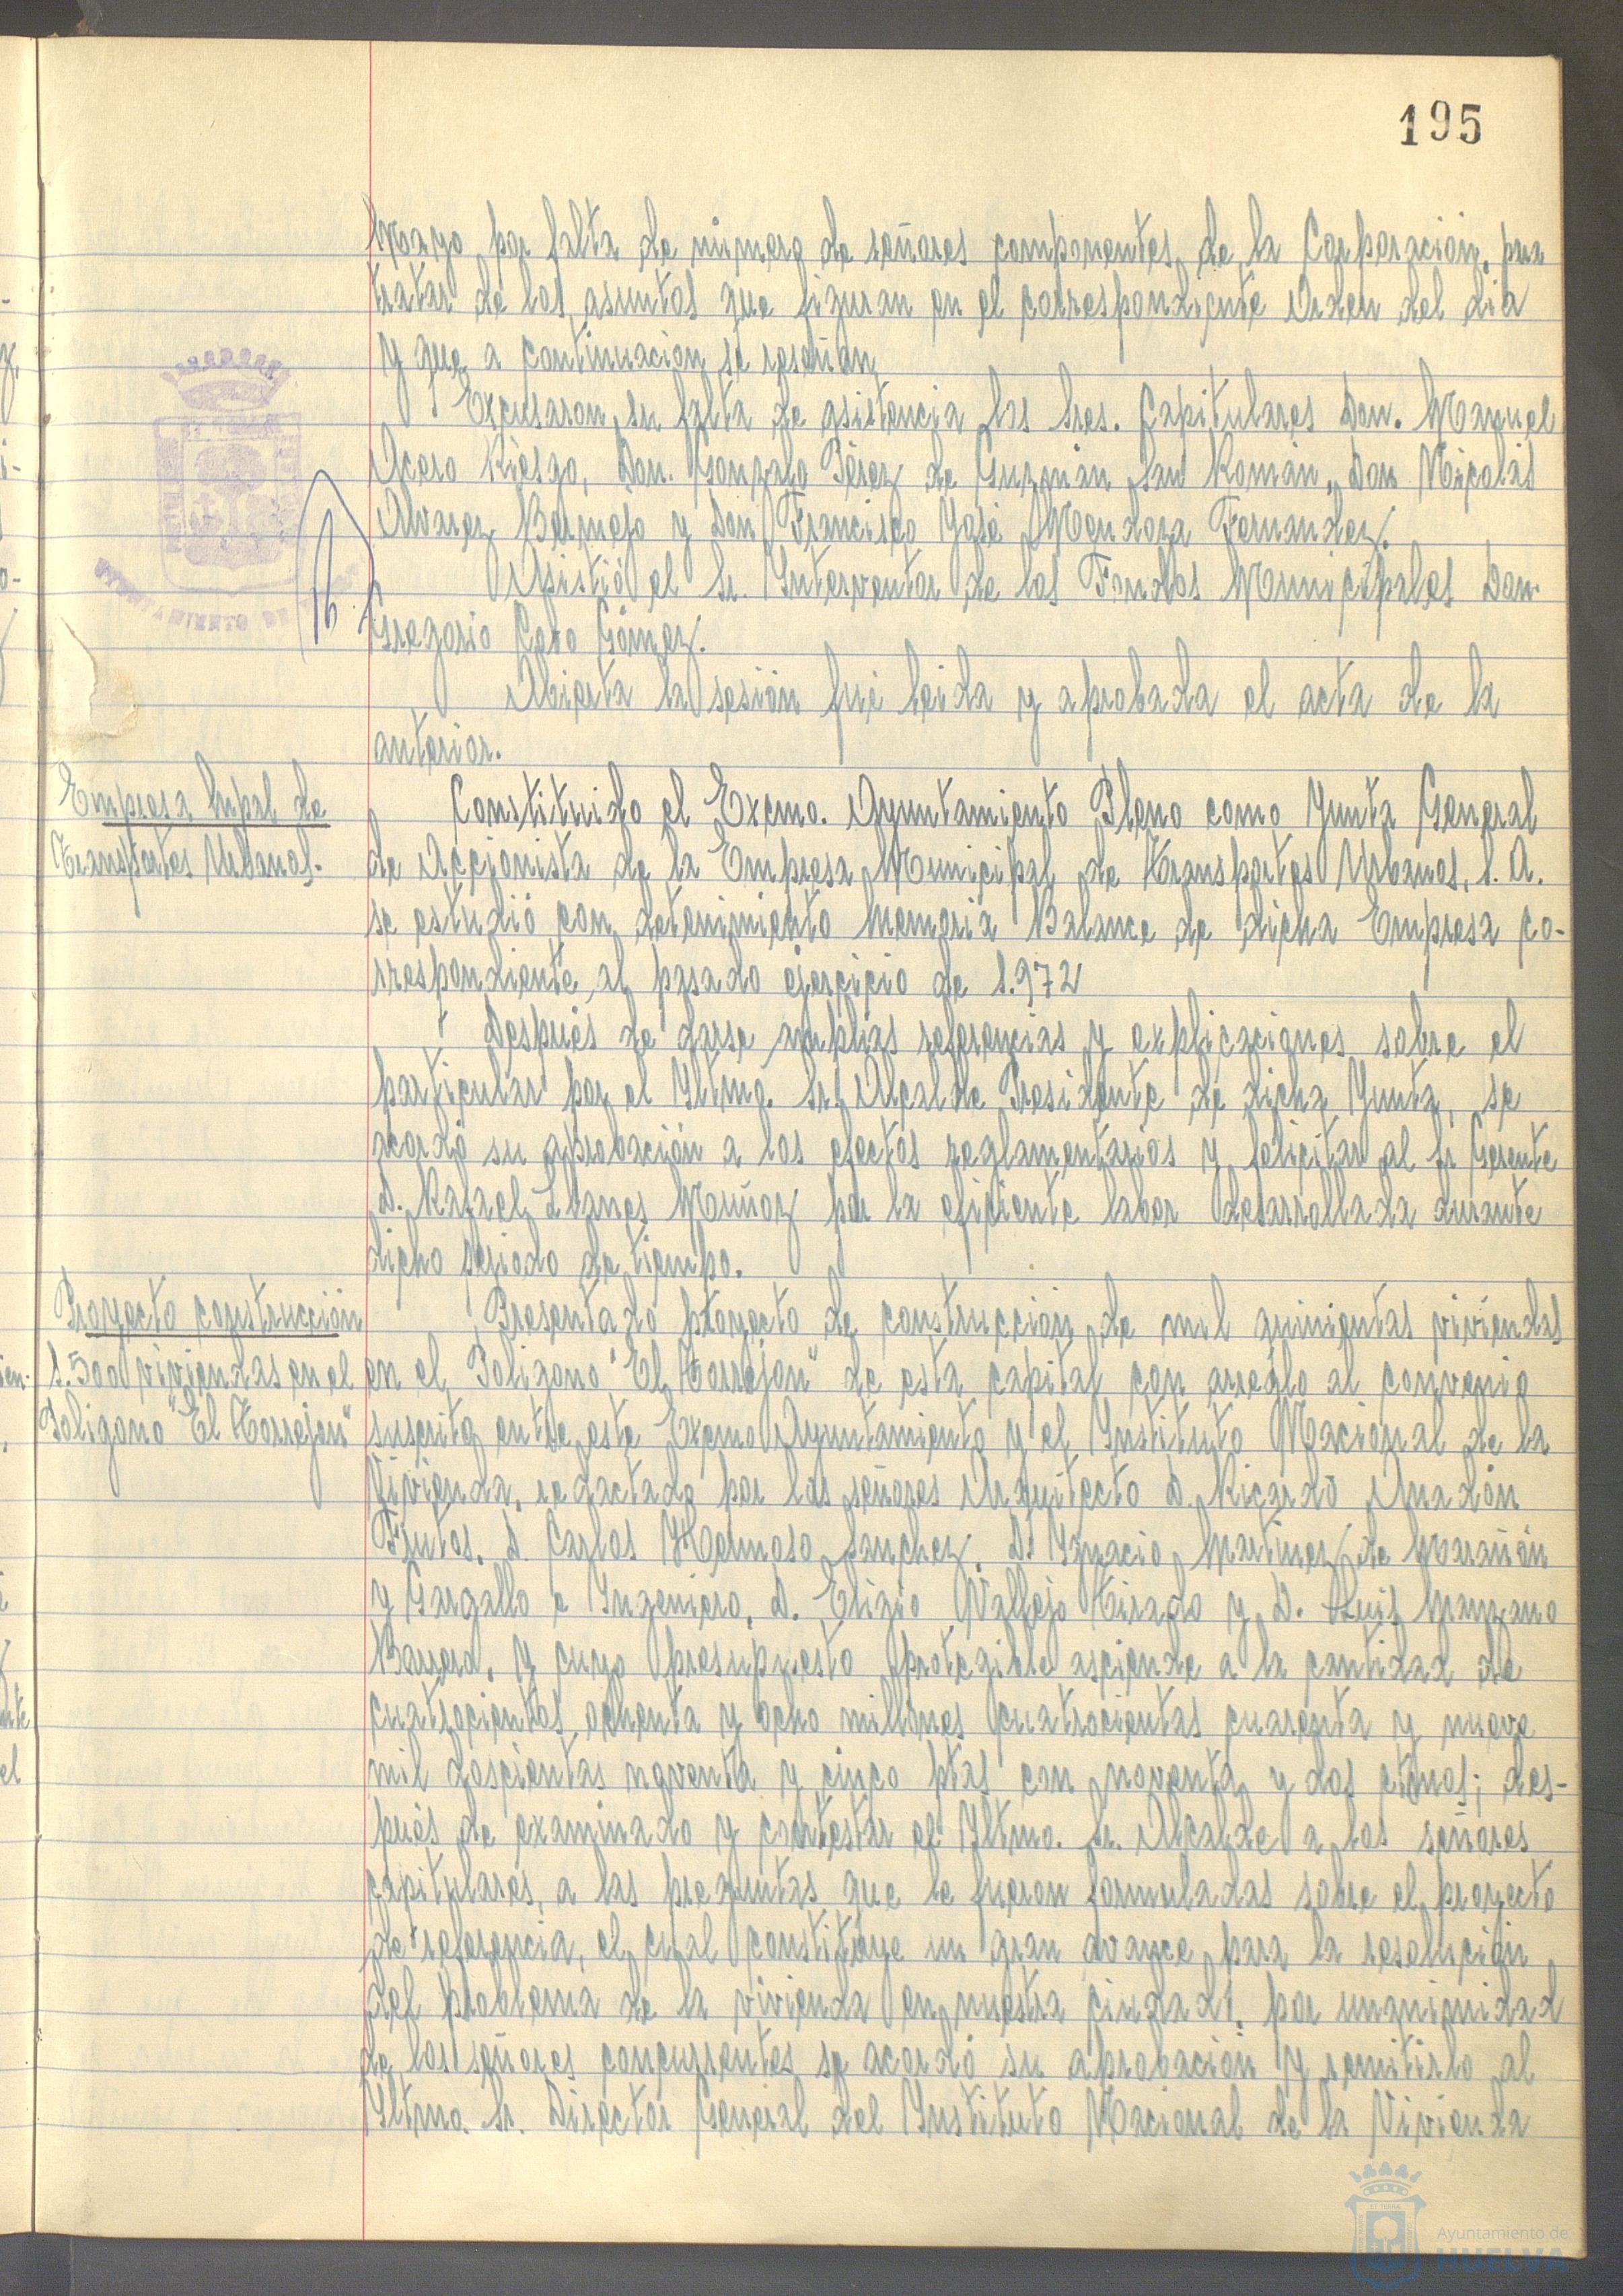 195
Mayo por falta de número de señores componentes de la Corporación, para
tratar de los asuntos que figuran en el correspondiente Orden del día
y que a continuación se reseñan
Excusaron su falta de asistencia los Sres. Capitulares Don. Manuel
Acero Riesgo, Don. Gonzalo Pérez de Guzmán San Román, Don Nicolás
Alvarez Bermejo y Don Francisco José Mendoza Fernandez.
Asistió el Sr. Interventor de los Fondos Municipales Don.
Gregorio Gómez.
Abierta la sesión fué leida y aprobada el acta de la
anterior.
Empresa Mpal de
Transportes Urbanos.-
Constituido el Excmo. Ayuntamiento Pleno como Junta General
de Accionista de la Empresa Municipal de Transportes Urbanos, S. A.
se estudió con detenimiento Memoria Balance de dicha Empresa co-
rrespondiente al pasado ejercicio de 1.972
Después de darse amplias referencias y explicaciones sobre el
particular por el Iltmo. Sr. Alcalde Presidente de dicha Junta, se
acordó su aprobación a los efectos reglamentarios y felicitar al Sr Gerente
D. Rafael Llanes Muñoz por la eficiente labor desarrollada durante
dicho periodo de tiempo.
Proyecto construcción
1.500 viviendas en el
Poligono "El Torrejon"
Presentado proyecto de construcción de mil quinientas viviendas
en el Poligono "El Torrejon" de esta capital con arreglo al convenio
suscrito entre este Excmo Ayuntamiento y el Instituto Nacional de la
Vivienda, redactado por los señores Arquitecto D. Ricardo Anadón
Frutos, D. Carlos Hermoso Sanchez, D. Ignacio Martinez de Marañón
y Gargallo e Ingeniero, D. Eligio Vallejo Tirado y D. Luis Manzano
Barrero, y cuyo presupuesto protegible asciende a la cantidad de
cuatrocientos ochenta y ocho millones cuatrocientas cuarenta y nueve
mil doscientas noventa y cinco ptas con noventa y dos ctmos; des-
pués de examinado y contestar el Iltmo. Sr. Alcalde a los señores
capitulares, a las preguntas que le fueron formuladas sobre el proyecto
de referencia, el cual constituye un gran avance para la resolución
del problema de la vivienda en nuestra ciudad, por unanimidad
de los señores concurrentes se acordó su aprobación y remitirlo al
Iltmo. Sr. Director General del Instituto Nacional de la Vivienda
AYUNTAMIENTO DE
Ayuntamiento de
HUELVA